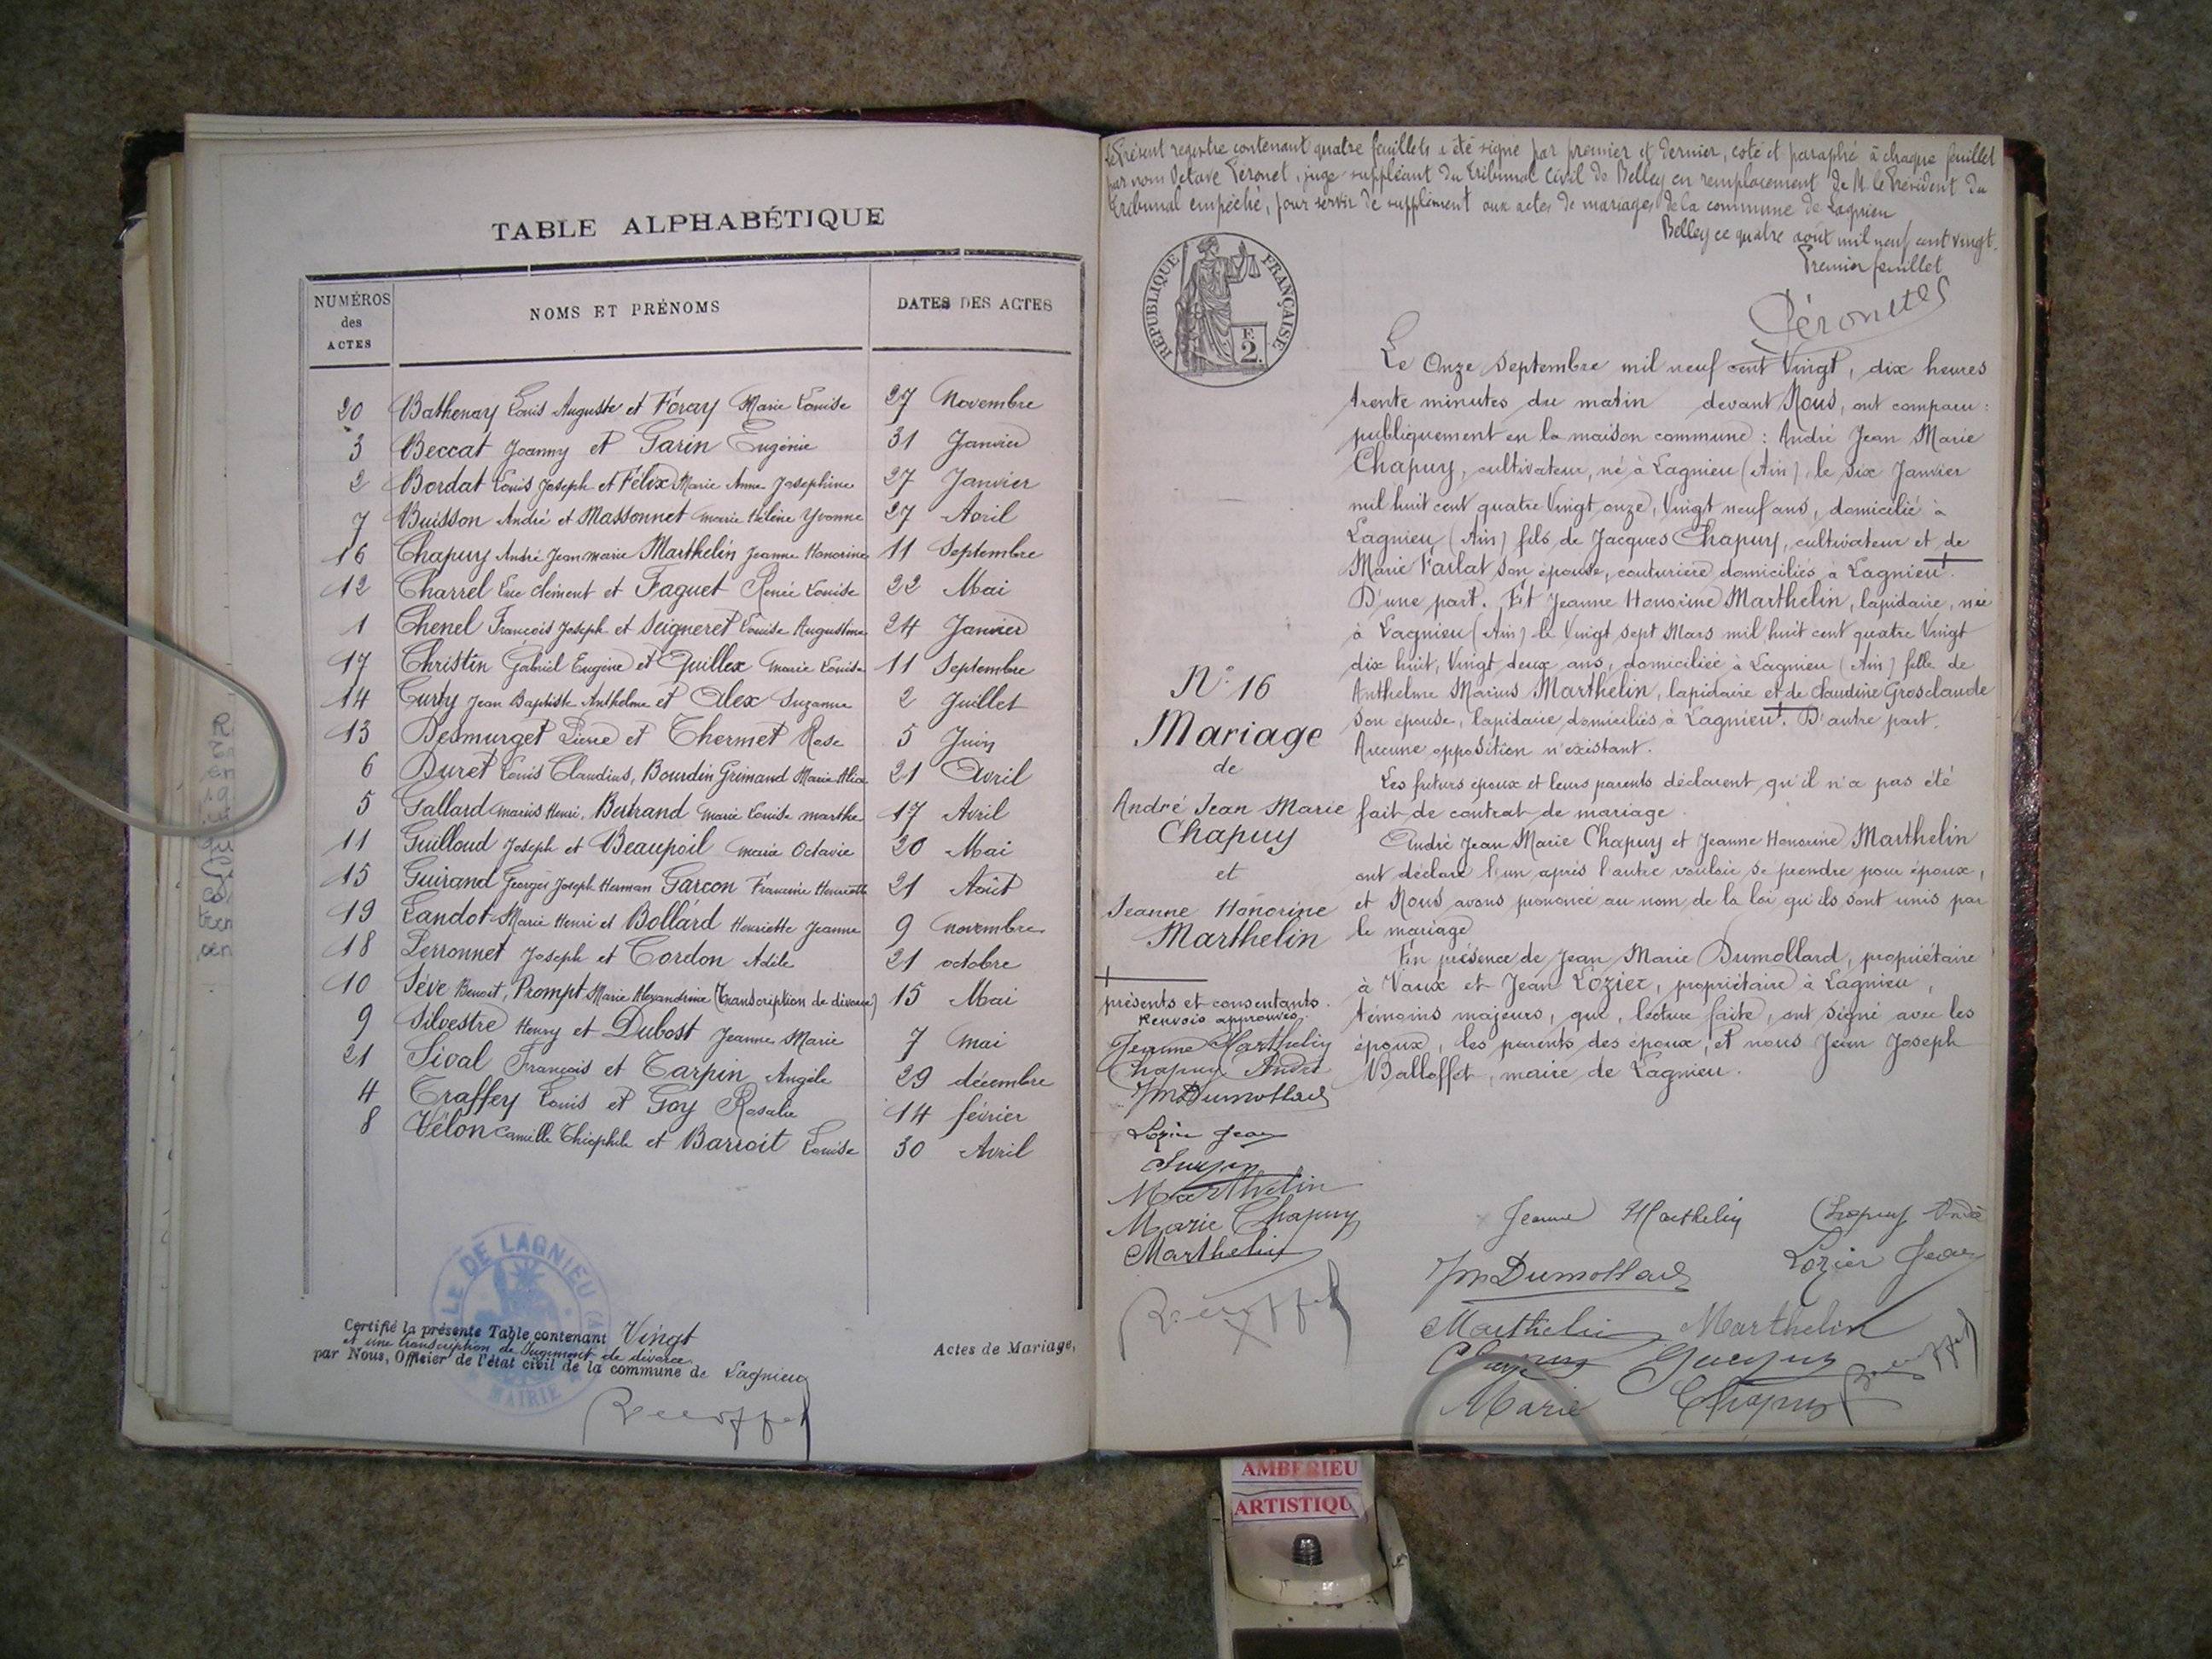 TABLE ALPHABÉTIQUE
NUMÉROS des ACTES
NOMS ET PRÉNOMS
DATES DES ACTES
20 Bathenay Louis Auguste et Foray Marie Louise 27 Novembre
3 Beccat Joanny et Garin Eugénie 31 Janvier
2 Bordat Louis Joseph et Félix Marie Anne Josephine 27 Janvier
7 Buisson André et Massonnet Marie Hélène Yvonne 27 Avril
16 Chapuy André Jean marie Marthelin Jeanne Honorine 11 Septembre
12 Charrel Luc Clément et Faguet Renée Louise 22 Mai
1 Chenel François Joseph et Seigneret Louise Augustine 24 Janvier
17 Christin Gabriel Eugène et Quillex Marie Louise 11 Septembre
14 Curty Jean Baptiste Anthelme et Alex Suzanne 2 Juillet
13 Desmurget Pierre et Thermet Rose 5 Juin
6 Duret Louis Claudius, Bourdin Grimaud Marie Alice 21 Avril
5 Gallard Marius Henri, Bertrand Marie Louise marthe 17 Avril
11 Guilloud Joseph et Beaupoil Maria Octavie 20 Mai
15 Guirand Georges Joseph Herman Garcon Francine Henriette 21 Août
19 Landot Marie Henri et Bollard Henriette Jeanne 9 novembre
18 Perronnet Joseph et Cordon Adèle 21 octobre
10 Sève Benoit, Prompt Marie Alexandrine (transcription de divorce) 15 Mai
9 Silvestre Henry et Dubost Jeanne Marie 7 mai
21 Sival François et Tarpin Angèle 29 décembre
4 Traffey Louis et Goy Rosalie 14 février
8 Vélon Camille Théophile et Barroit Louise 30 Avril
LE DE LAGNIEU
MAIRIE
Certifié la présente Table contenant Vingt
et une transcription de Jugement de divorce
Actes de Mariage,
par Nous, Officier de l'état civil de la commune de Lagnieu
Le Présent registre contenant quatre feuillets a été signé par premier et dernier, coté et paraphé à chaque feuillet
par nous Octave Péronet, juge suppléant du tribunal civil de Belley en remplacement de M. le Président du
tribunal empêché, pour servir de supplément aux actes de mariages de la commune de Lagnieu
Belley ce quatre août mil neuf cent vingt.
Premier feuillet
RÉPUBLIQUE FRANÇAISE
F.
2.
Le Onze Septembre mil neuf cent Vingt, dix heures
trente minutes du matin devant Nous, ont comparu :
publiquement en la maison commune : André Jean Marie
Chapuy, cultivateur, né à Lagnieu (Ain), le six Janvier
mil huit cent quatre Vingt onze, Vingt neuf ans, domicilié à
Lagnieu (Ain) fils de Jacques Chapuy, cultivateur et de
Marie Varlat son épouse, couturière domiciliés à Lagnieu.
D'une part. Et Jeanne Honorine Marthelin, lapidaire, née
à Lagnieu (Ain) le Vingt sept Mars mil huit cent quatre Vingt
dix huit, Vingt deux ans, domiciliée à Lagnieu (Ain) fille de
Anthelme Marius Marthelin, lapidaire et de Claudine Grosclaude
son épouse, lapidaire domiciliés à Lagnieu. D'autre part.
Aucune opposition n'existant.
Les futurs époux et leurs parents déclarent qu'il n'a pas été
fait de contrat de mariage.
André Jean Marie Chapuy et Jeanne Honorine Marthelin
ont déclaré l'un après l'autre vouloir se prendre pour époux,
et Nous avons prononcé au nom de la loi qu'ils sont unis par
le mariage
En présence de Jean Marie Dumollard, propriétaire
à Vaux et Jean Lozier, propriétaire à Lagnieu,
témoins majeurs, qui, lecture faite, ont signé avec les
époux, les parents des époux, et nous Jean Joseph
Balloffet, maire de Lagnieu.
N° 16
Mariage
de
André Jean Marie
Chapuy
et
Jeanne Honorine
Marthelin
présents et consentants.
Renvois approuvés.
Jeanne Marthelin
Chapuy André
JM Dumollard
Lozier Jean
Marthelin
Marie Chapuy
Marthelin
Jeanne Marthelin Chapuy André
JM Dumollard Lozier Jean
Marthelin Marthelin
Marie Chapuy
AMBERIEU
ARTISTIQU